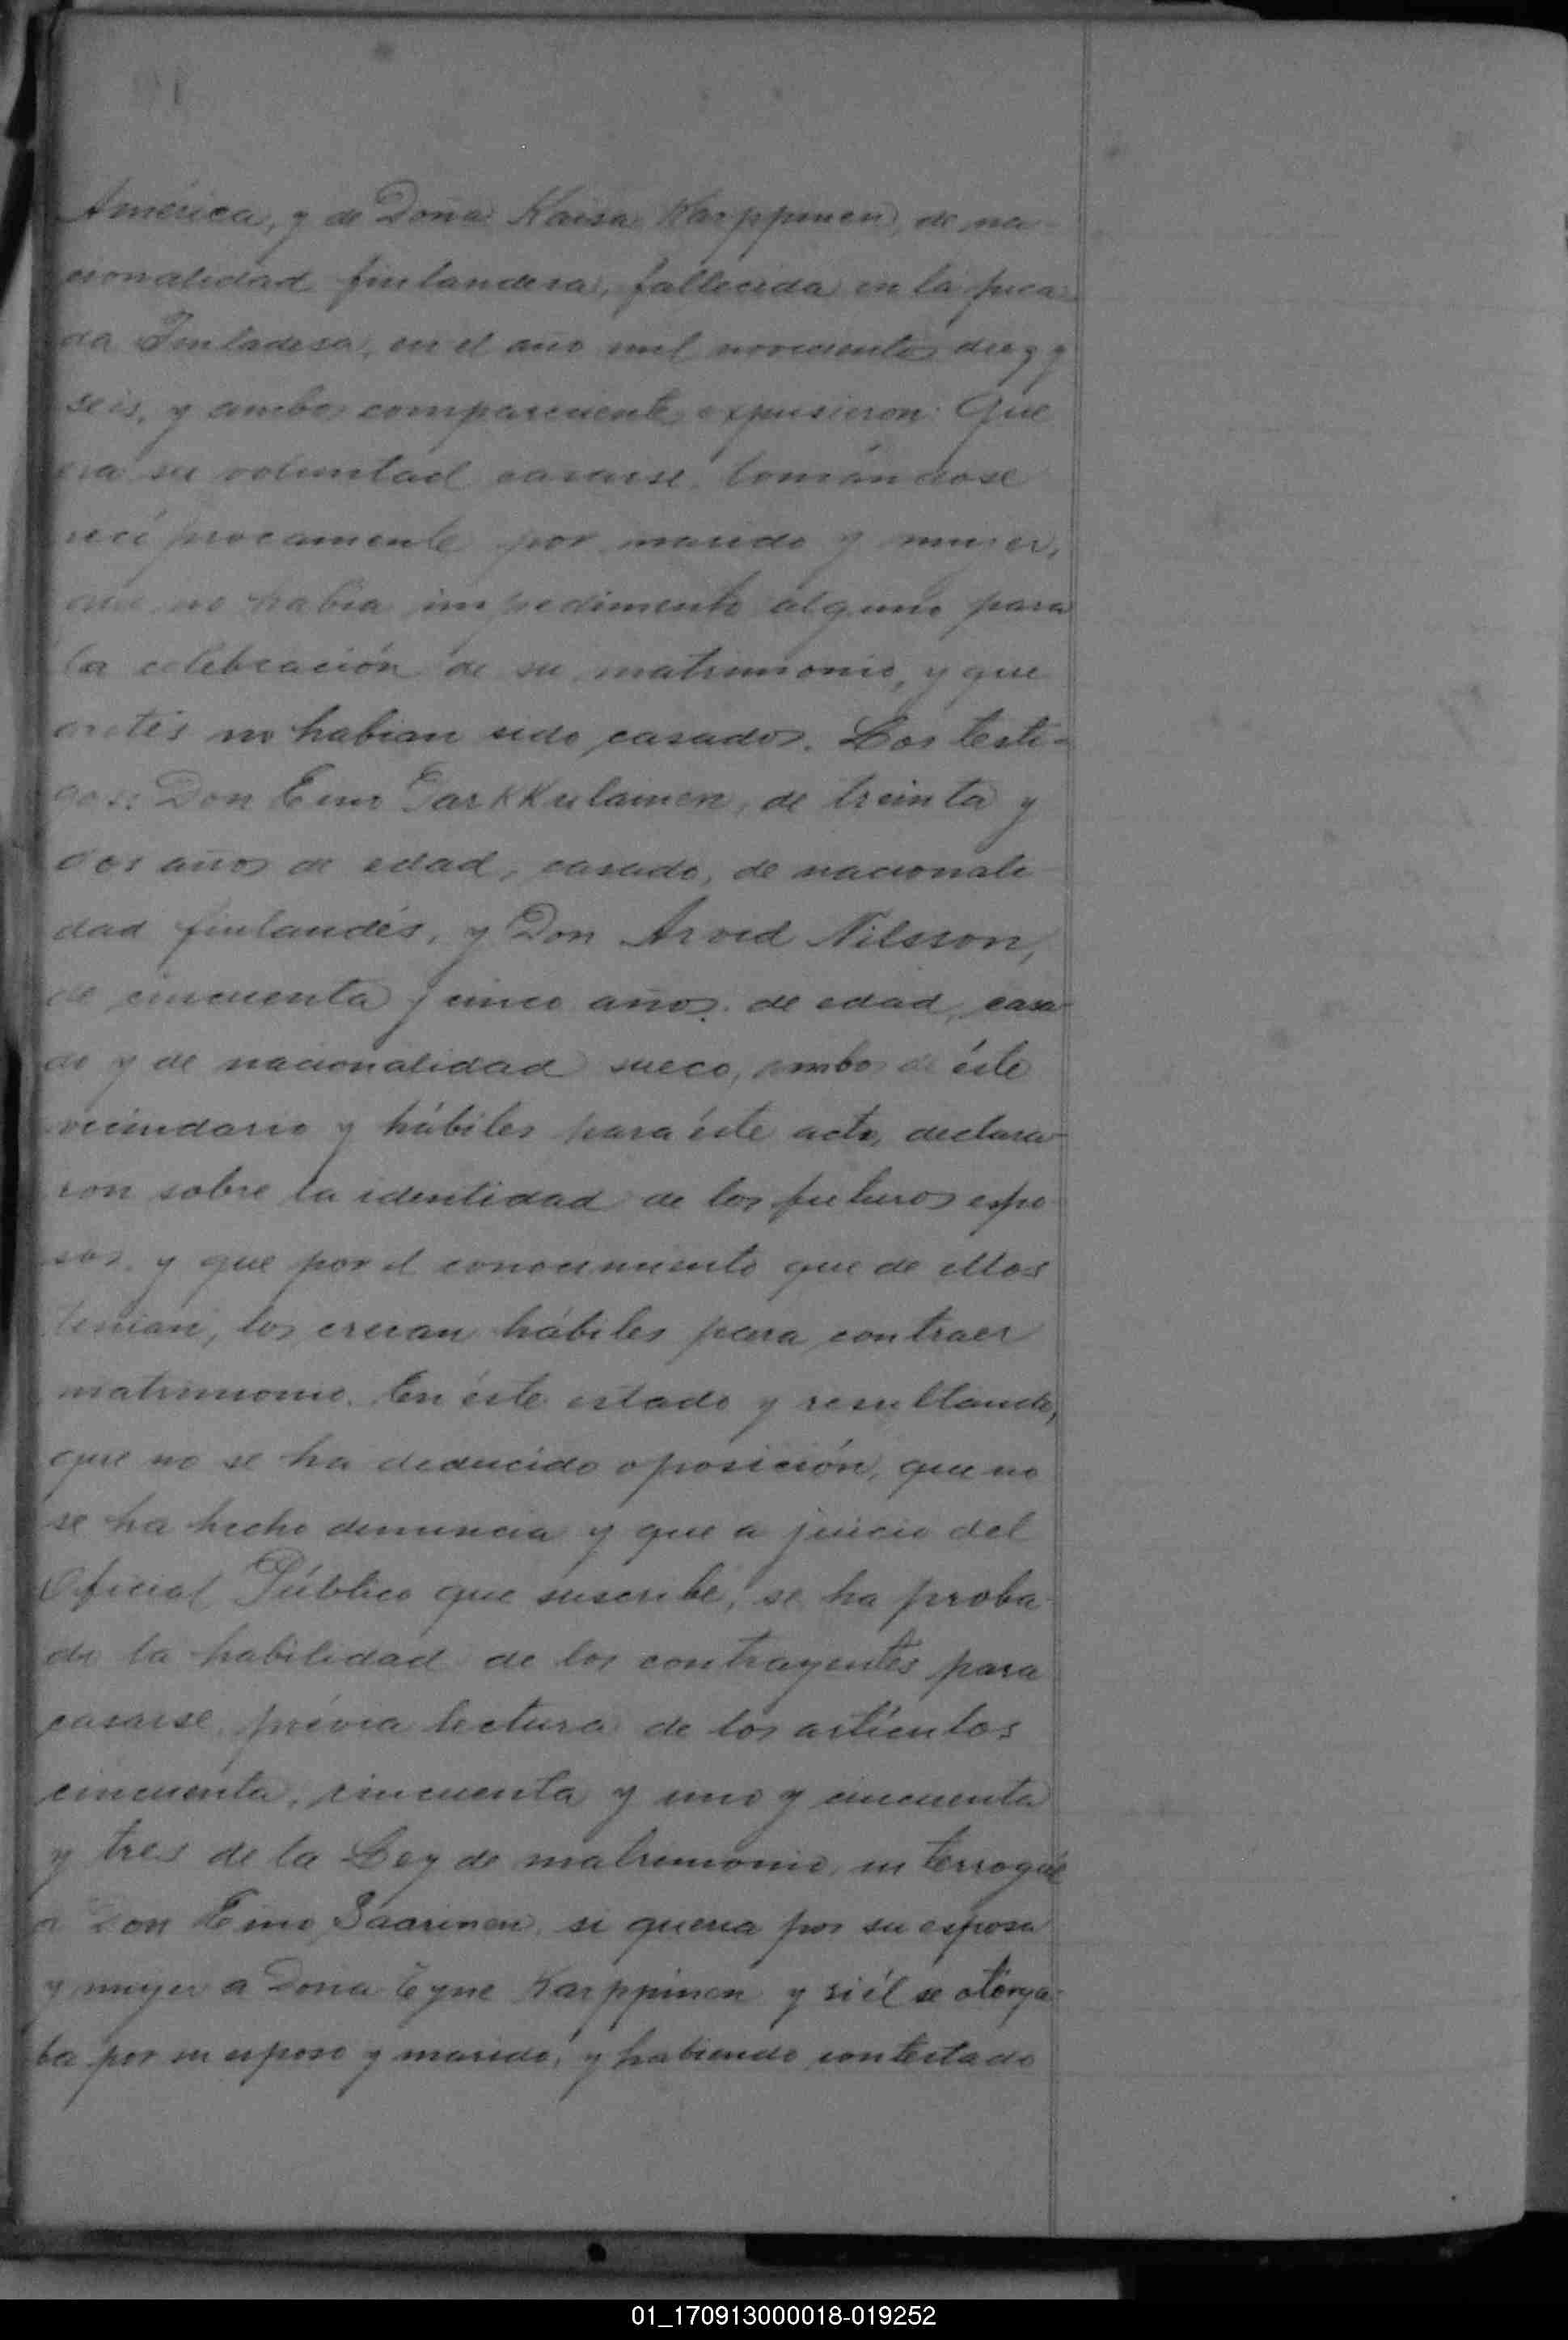 América, y de Doña Kaisa Karppinen, de na-
cionalidad finlandesa, fallecida en la pica-
da Finladesa, en el año mil novecientos diez y
seis, y ambos compareciente expusieron: Que
era su voluntad casarse, tomándose
recíprocamente por marido y mujer,
que no habia impedimento alguno para
la celebración de su matrimonio, y que
antes no habian sido casados. Los testi-
gos: Don Eino Parkkulainen, de treinta y
dos años de edad, casado, de nacionali-
dad finlandés, y Don Arvid Nilsson,
de cincuenta y cinco años de edad, casa-
do y de nacionalidad sueco, ambos de éste
vecindario y hábiles para éste acto, declara-
ron sobre la identidad de los futuros espo-
sos, y que por el conocimiento que de ellos
tenian, los creian hábiles para contraer
matrimonio. En éste estado y resultando,
que no se ha deducido oposición, que no
se ha hecho denuncia y que a juicio del
Oficial Público que suscribe, se ha proba-
do la habilidad de los contrayentes para
casarse, prévia lectura de los artículos
cincuenta, cincuenta y uno y cincuenta
y tres de la Ley de matrimonio, interrogué
a Don Eino Saarinen, si queria por su esposa
y mujer a Doña Eyne Karppinen y si él se otorga-
ba por su esposo y marido, y habiendo contestado
01_170913000018-019252